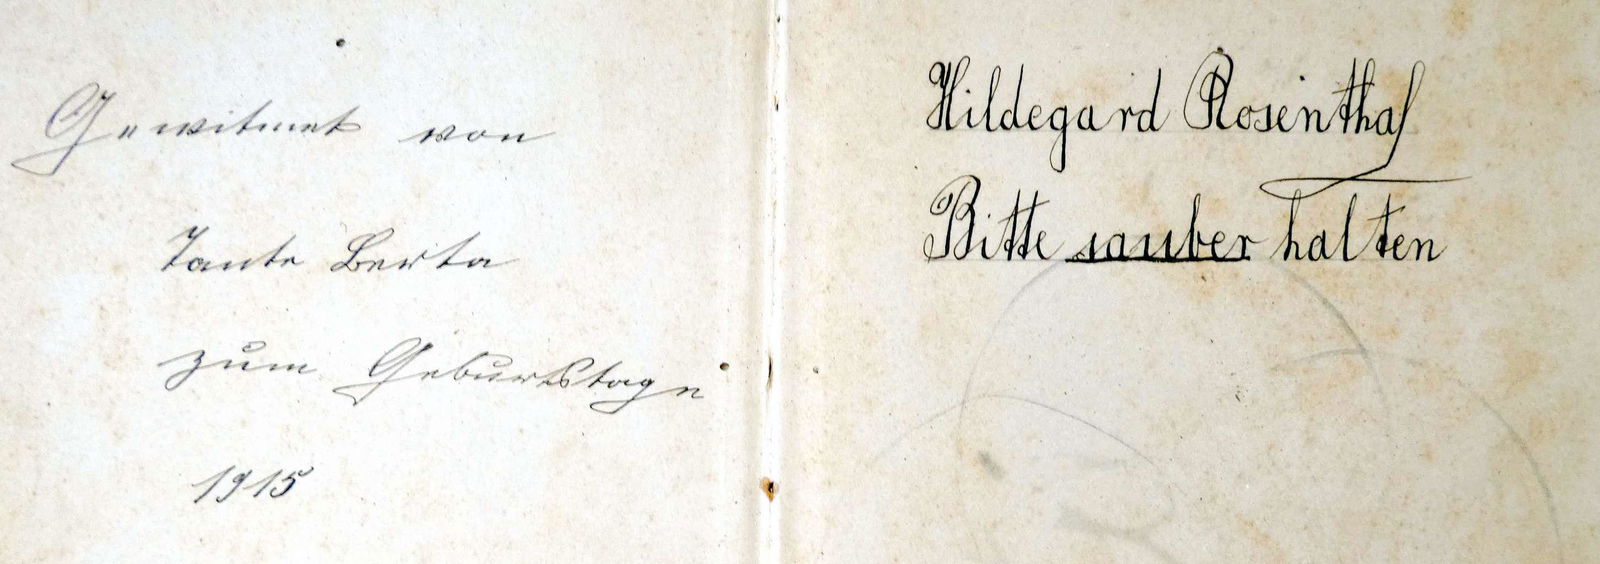 Gewitmet von
Tante Berta
zum Geburtstage
1915
Hildegard Rosenthal
Bitte sauber halten